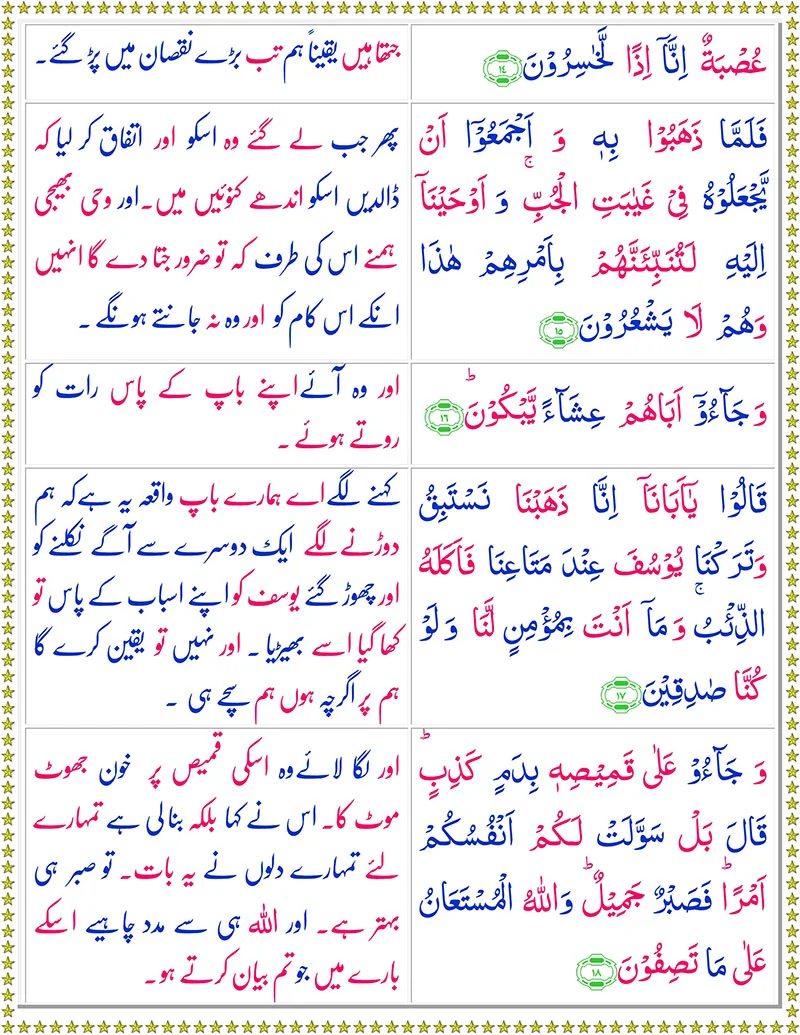 عُصۡبَةٌ اِنَّاۤ اِذًا لَّخٰسِرُوۡنَ ﴿۱٤﴾
جتھا ہیں یقیناً ہم تب بڑے نقصان میں پڑ گئے۔
فَلَمَّا ذَهَبُوۡا بِهٖ وَ اَجۡمَعُوۡۤا اَنۡ
يَّجۡعَلُوۡهُ فِىۡ غَيٰبَتِ الۡجُبِّ​ۚ وَ اَوۡحَيۡنَاۤ
اِلَيۡهِ لَـتُنَـبِّئَنَّهُمۡ بِاَمۡرِهِمۡ هٰذَا
وَهُمۡ لَا يَشۡعُرُوۡنَ ﴿۱۵﴾
پھر جب لے گئے وہ اسکو اور اتفاق کر لیا کہ
ڈالدیں اسکو اندھے کنوئیں میں۔ اور وحی بھیجی
ہمنے اس کی طرف کہ تو ضرور جتا دے گا انہیں
انکے اس کام کو اور وہ نہ جانتے ہونگے ۔
وَ جَآءُوۡۤ اَبَاهُمۡ عِشَآءً يَّبۡكُوۡنَؕ ﴿۱٦﴾
اور وہ آئے اپنے باپ کے پاس رات کو
روتے ہوئے ۔
قَالُوۡا يٰۤاَبَانَاۤ اِنَّا ذَهَبۡنَا نَسۡتَبِقُ
وَتَرَكۡنَا يُوۡسُفَ عِنۡدَ مَتَاعِنَا فَاَكَلَهُ
الذِّئۡبُ​ۚ وَ مَاۤ اَنۡتَ بِمُؤۡمِنٍ لَّنَا وَ لَوۡ
كُنَّا صٰدِقِيۡنَ ﴿۱۷﴾
کہنے لگے اے ہمارے باپ واقعہ یہ ہے کہ ہم
دوڑنے لگے ایک دوسرے سے آگے نکلنے کو
اور چھوڑ گئے یوسف کو اپنے اسباب کے پاس تو
کھا گیا اسے بھیڑیا ۔ اور نہیں تو یقین کرے گا
ہم پر اگرچہ ہوں ہم سچے ہی ۔
وَ جَآءُوۡ عَلٰى قَمِيۡـصِهٖ بِدَمٍ كَذِبٍ​ؕ
قَالَ بَلۡ سَوَّلَتۡ لَـكُمۡ اَنۡفُسُكُمۡ
اَمۡرًا​ؕ فَصَبۡرٌ جَمِيۡلٌ​ؕ وَاللّٰهُ الۡمُسۡتَعَانُ
عَلٰى مَا تَصِفُوۡنَ ﴿۱۸﴾
اور لگا لائے وہ اسکی قمیص پر خون جھوٹ
موٹ کا۔ اس نے کہا بلکہ بنالی ہے تمہارے
لئے تمہارے دلوں نے یہ بات۔ تو صبر ہی
بہتر ہے۔ اور اللہ ہی سے مدد چاہیے اسکے
بارے میں جو تم بیان کرتے ہو۔